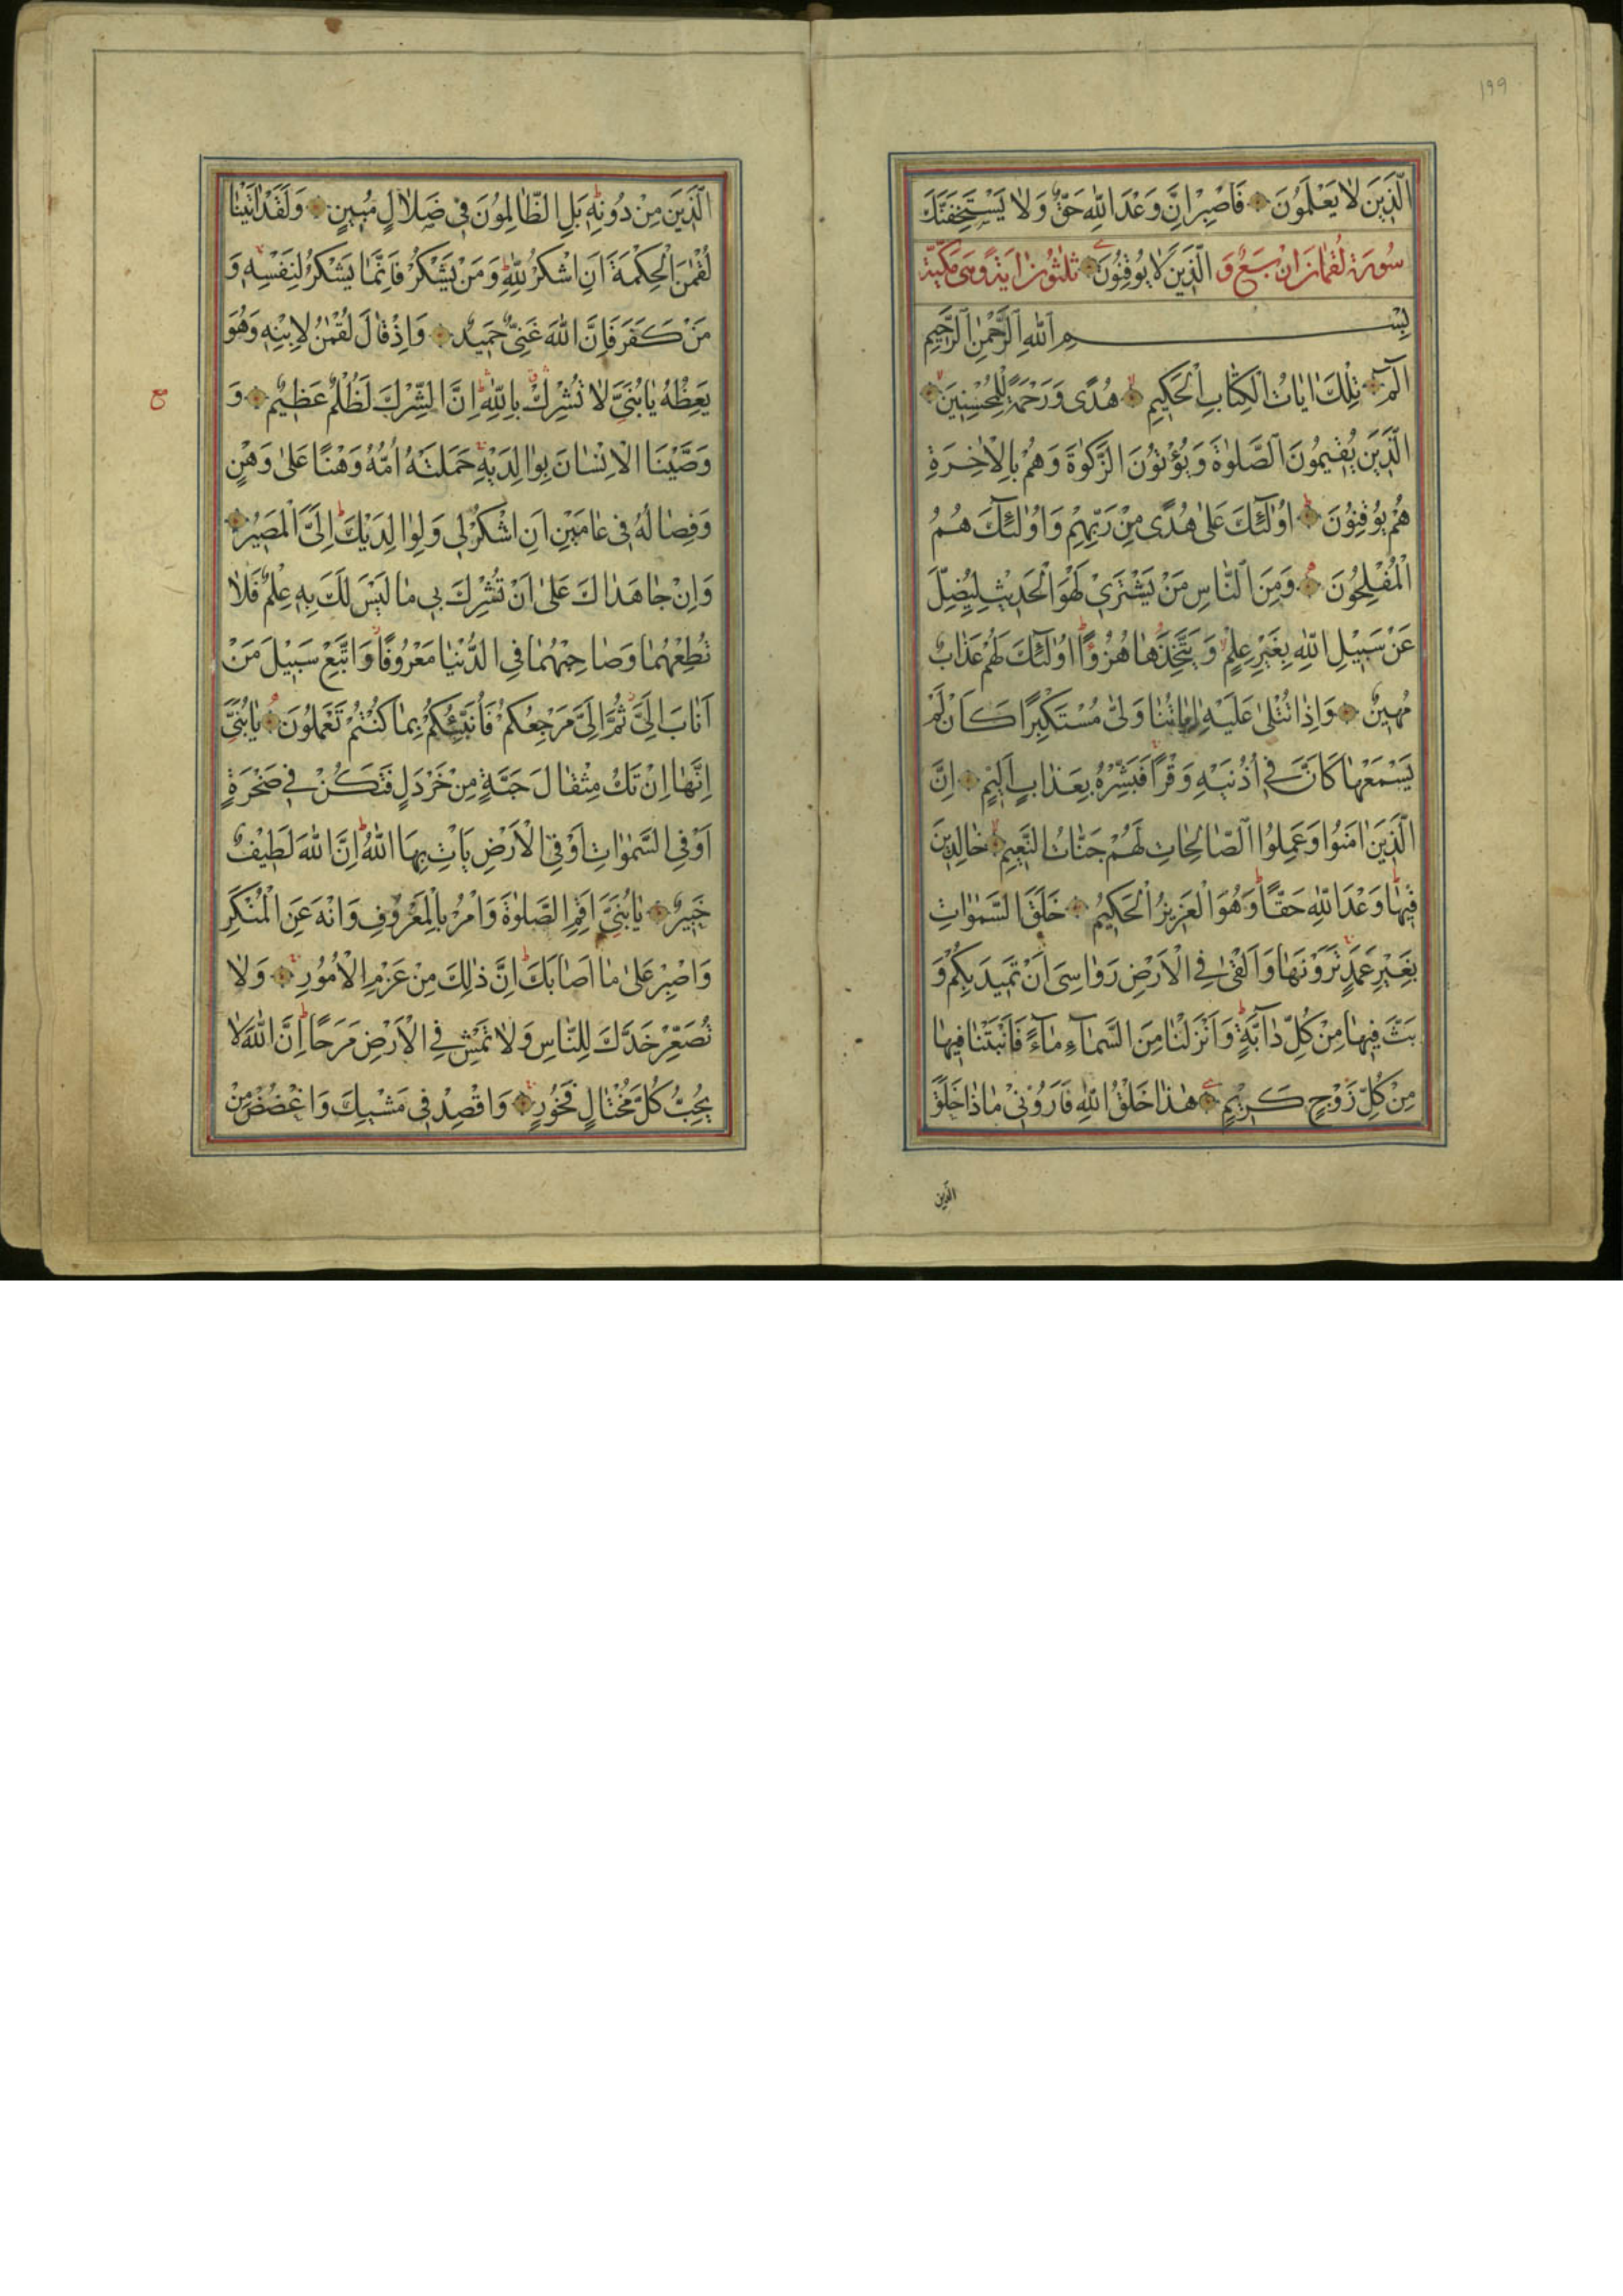 ١٩٩
الَّذِينَ لَا يَعْلَمُونَ فَاصْبِرْ اِنَّ وَعْدَ اللّٰهِ حَقٌّ وَلَا يَسْتَخِفَّنَّكَ
سُورَة لُقْمَان اربع وَ الَّذِينَ لَا يُوقِنُونَ ثلثون اية وهى مكية
بِسْمِ اللّٰهِ الرَّحْمٰنِ الرَّحِيمِ
الٓمٓ تِلْكَ اٰيَاتُ الْكِتَابِ الْحَكِيمِ هُدًى وَرَحْمَةً لِلْمُحْسِنِينَ
الَّذِينَ يُقِيمُونَ الصَّلٰوةَ وَيُؤْتُونَ الزَّكٰوةَ وَهُمْ بِالْاٰخِرَةِ
هُمْ يُوقِنُونَ اُولٰٓئِكَ عَلٰى هُدًى مِنْ رَبِّهِمْ وَاُولٰٓئِكَ هُمُ
الْمُفْلِحُونَ وَمِنَ النَّاسِ مَنْ يَشْتَرِي لَهْوَ الْحَدِيثِ لِيُضِلَّ
عَنْ سَبِيْلِ اللّٰهِ بِغَيْرِ عِلْمٍ وَيَتَّخِذَهَا هُزُوًا اُولٰٓئِكَ لَهُمْ عَذَابٌ
مُهِينٌ وَاِذَا تُتْلٰى عَلَيْهِ اٰيَاتُنَا وَلّٰى مُسْتَكْبِرًا كَاَنْ لَمْ
يَسْمَعْهَا كَاَنَّ فِي اُذُنَيْهِ وَقْرًا فَبَشِّرْهُ بِعَذَابٍ اَلِيْمٍ اِنَّ
الَّذِينَ اٰمَنُوا وَعَمِلُوا الصَّالِحَاتِ لَهُمْ جَنَّاتُ النَّعِيمِ خَالِدِينَ
فِيهَا وَعْدَ اللّٰهِ حَقًّا وَهُوَ الْعَزِيزُ الْحَكِيمُ خَلَقَ السَّمٰوَاتِ
بِغَيْرِ عَمَدٍ تَرَوْنَهَا وَاَلْقٰى فِي الْاَرْضِ رَوَاسِيَ اَنْ تَمِيدَ بِكُمْ وَ
بَثَّ فِيهَا مِنْ كُلِّ دَآبَّةٍ وَاَنْزَلْنَا مِنَ السَّمَآءِ مَآءً فَاَنْبَتْنَا فِيهَا
مِنْ كُلِّ زَوْجٍ كَرِيْمٍ هٰذَا خَلْقُ اللّٰهِ فَاَرُوْنِيْ مَاذَا خَلَقَ
الذين
الَّذِينَ مِنْ دُونِهِ بَلِ الظَّالِمُونَ فِي ضَلَالٍ مُبِينٍ وَلَقَدْ اٰتَيْنَا
لُقْمٰنَ الْحِكْمَةَ اَنِ اشْكُرْ لِلّٰهِ وَمَنْ يَشْكُرْ فَاِنَّمَا يَشْكُرُ لِنَفْسِهِ وَ
مَنْ كَفَرَ فَاِنَّ اللّٰهَ غَنِيٌّ حَمِيدٌ وَاِذْ قَالَ لُقْمٰنُ لِابْنِهِ وَهُوَ
يَعِظُهُ يَا بُنَيَّ لَا تُشْرِكْ بِاللّٰهِ اِنَّ الشِّرْكَ لَظُلْمٌ عَظِيمٌ وَ
وَصَّيْنَا الْاِنْسَانَ بِوَالِدَيْهِ حَمَلَتْهُ اُمُّهُ وَهْنًا عَلٰى وَهْنٍ
وَفِصَالُهُ فِي عَامَيْنِ اَنِ اشْكُرْ لِي وَلِوَالِدَيْكَ اِلَيَّ الْمَصِيرُ
وَاِنْ جَاهَدَاكَ عَلٰى اَنْ تُشْرِكَ بِي مَا لَيْسَ لَكَ بِهِ عِلْمٌ فَلَا
تُطِعْهُمَا وَصَاحِبْهُمَا فِي الدُّنْيَا مَعْرُوفًا وَاتَّبِعْ سَبِيْلَ مَنْ
اَنَابَ اِلَيَّ ثُمَّ اِلَيَّ مَرْجِعُكُمْ فَاُنَبِّئُكُمْ بِمَا كُنْتُمْ تَعْمَلُونَ يَا بُنَيَّ
اِنَّهَا اِنْ تَكُ مِثْقَالَ حَبَّةٍ مِنْ خَرْدَلٍ فَتَكُنْ فِي صَخْرَةٍ
اَوْ فِي السَّمٰوَاتِ اَوْ فِي الْاَرْضِ يَاْتِ بِهَا اللّٰهُ اِنَّ اللّٰهَ لَطِيْفٌ
خَبِيرٌ يَا بُنَيَّ اَقِمِ الصَّلٰوةَ وَاْمُرْ بِالْمَعْرُوفِ وَانْهَ عَنِ الْمُنْكَرِ
وَاصْبِرْ عَلٰى مَا اَصَابَكَ اِنَّ ذٰلِكَ مِنْ عَزْمِ الْاُمُورِ وَلَا
تُصَعِّرْ خَدَّكَ لِلنَّاسِ وَلَا تَمْشِ فِي الْاَرْضِ مَرَحًا اِنَّ اللّٰهَ لَا
يُحِبُّ كُلَّ مُخْتَالٍ فَخُورٍ وَاقْصِدْ فِي مَشْيِكَ وَاغْضُضْ مِنْ